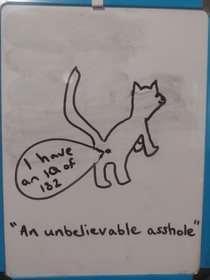 I have
an IQ of
132
"An unbelievable asshole"